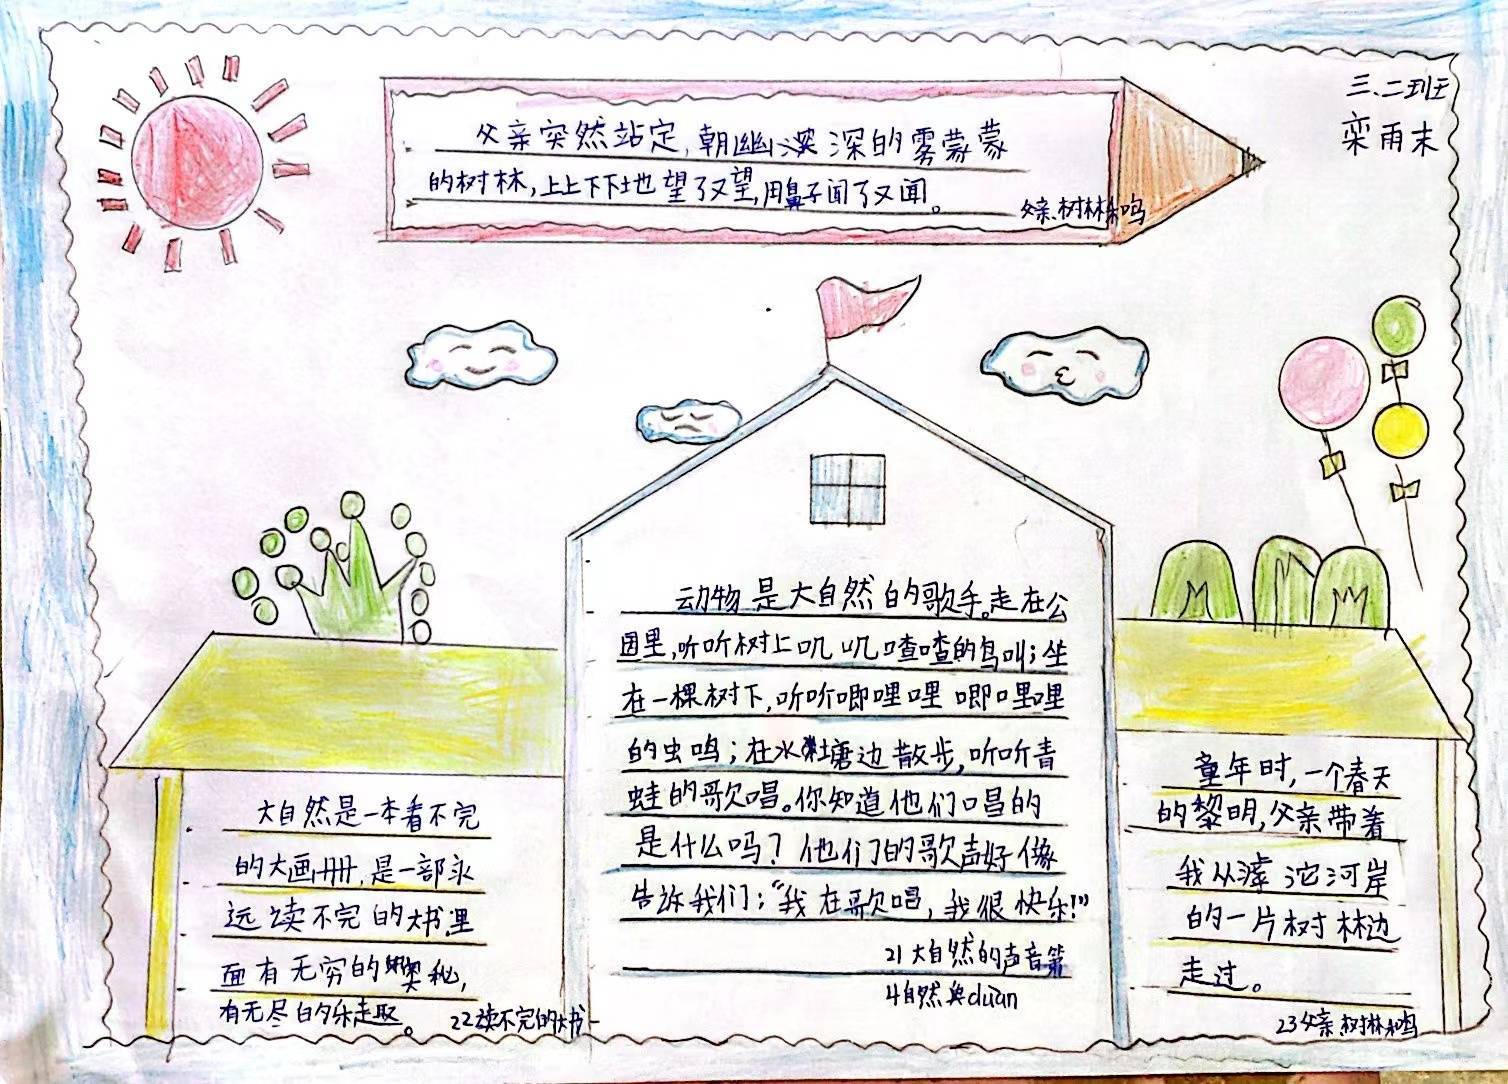 三、二班
栾雨末
父亲突然站定,朝幽深的雾蒙蒙
的树林,上上下下地望了又望,用鼻子闻了又闻。
父亲、树林和鸟
动物是大自然的歌手。走在公
园里,听听树上叽叽喳喳的鸟叫;坐
在一棵树下,听听唧哩哩唧哩哩
的虫鸣;在水塘边散步,听听青
蛙的歌唱。你知道他们唱的
是什么吗?他们的歌声好像
告诉我们:“我在歌唱,我很快乐!”
21大自然的声音第
4自然段duàn
大自然是一本看不完
的大画册,是一部永
远读不完的大书里
面有无穷的奥秘,
有无尽的乐趣。
22读不完的大书
童年时,一个春天
的黎明,父亲带着
我从滹沱河岸
的一片树林边
走过。
23父亲、树林和鸟